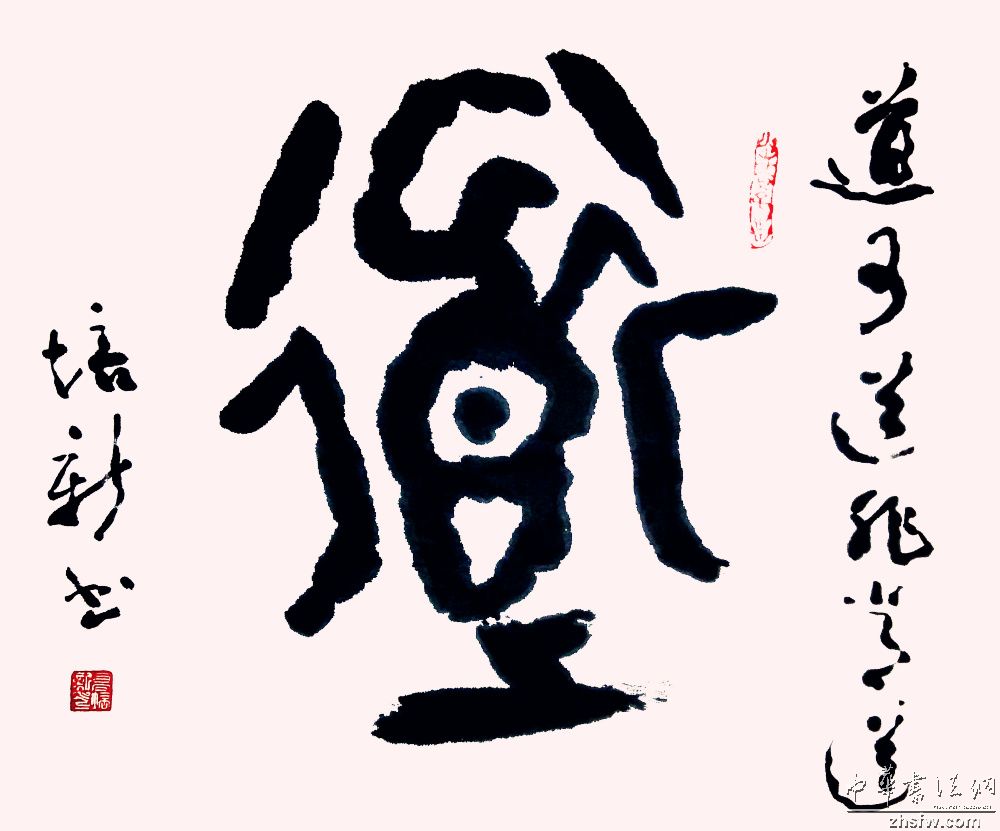 道可道非常道
道
培新书
中华书法网
zhsfw.com